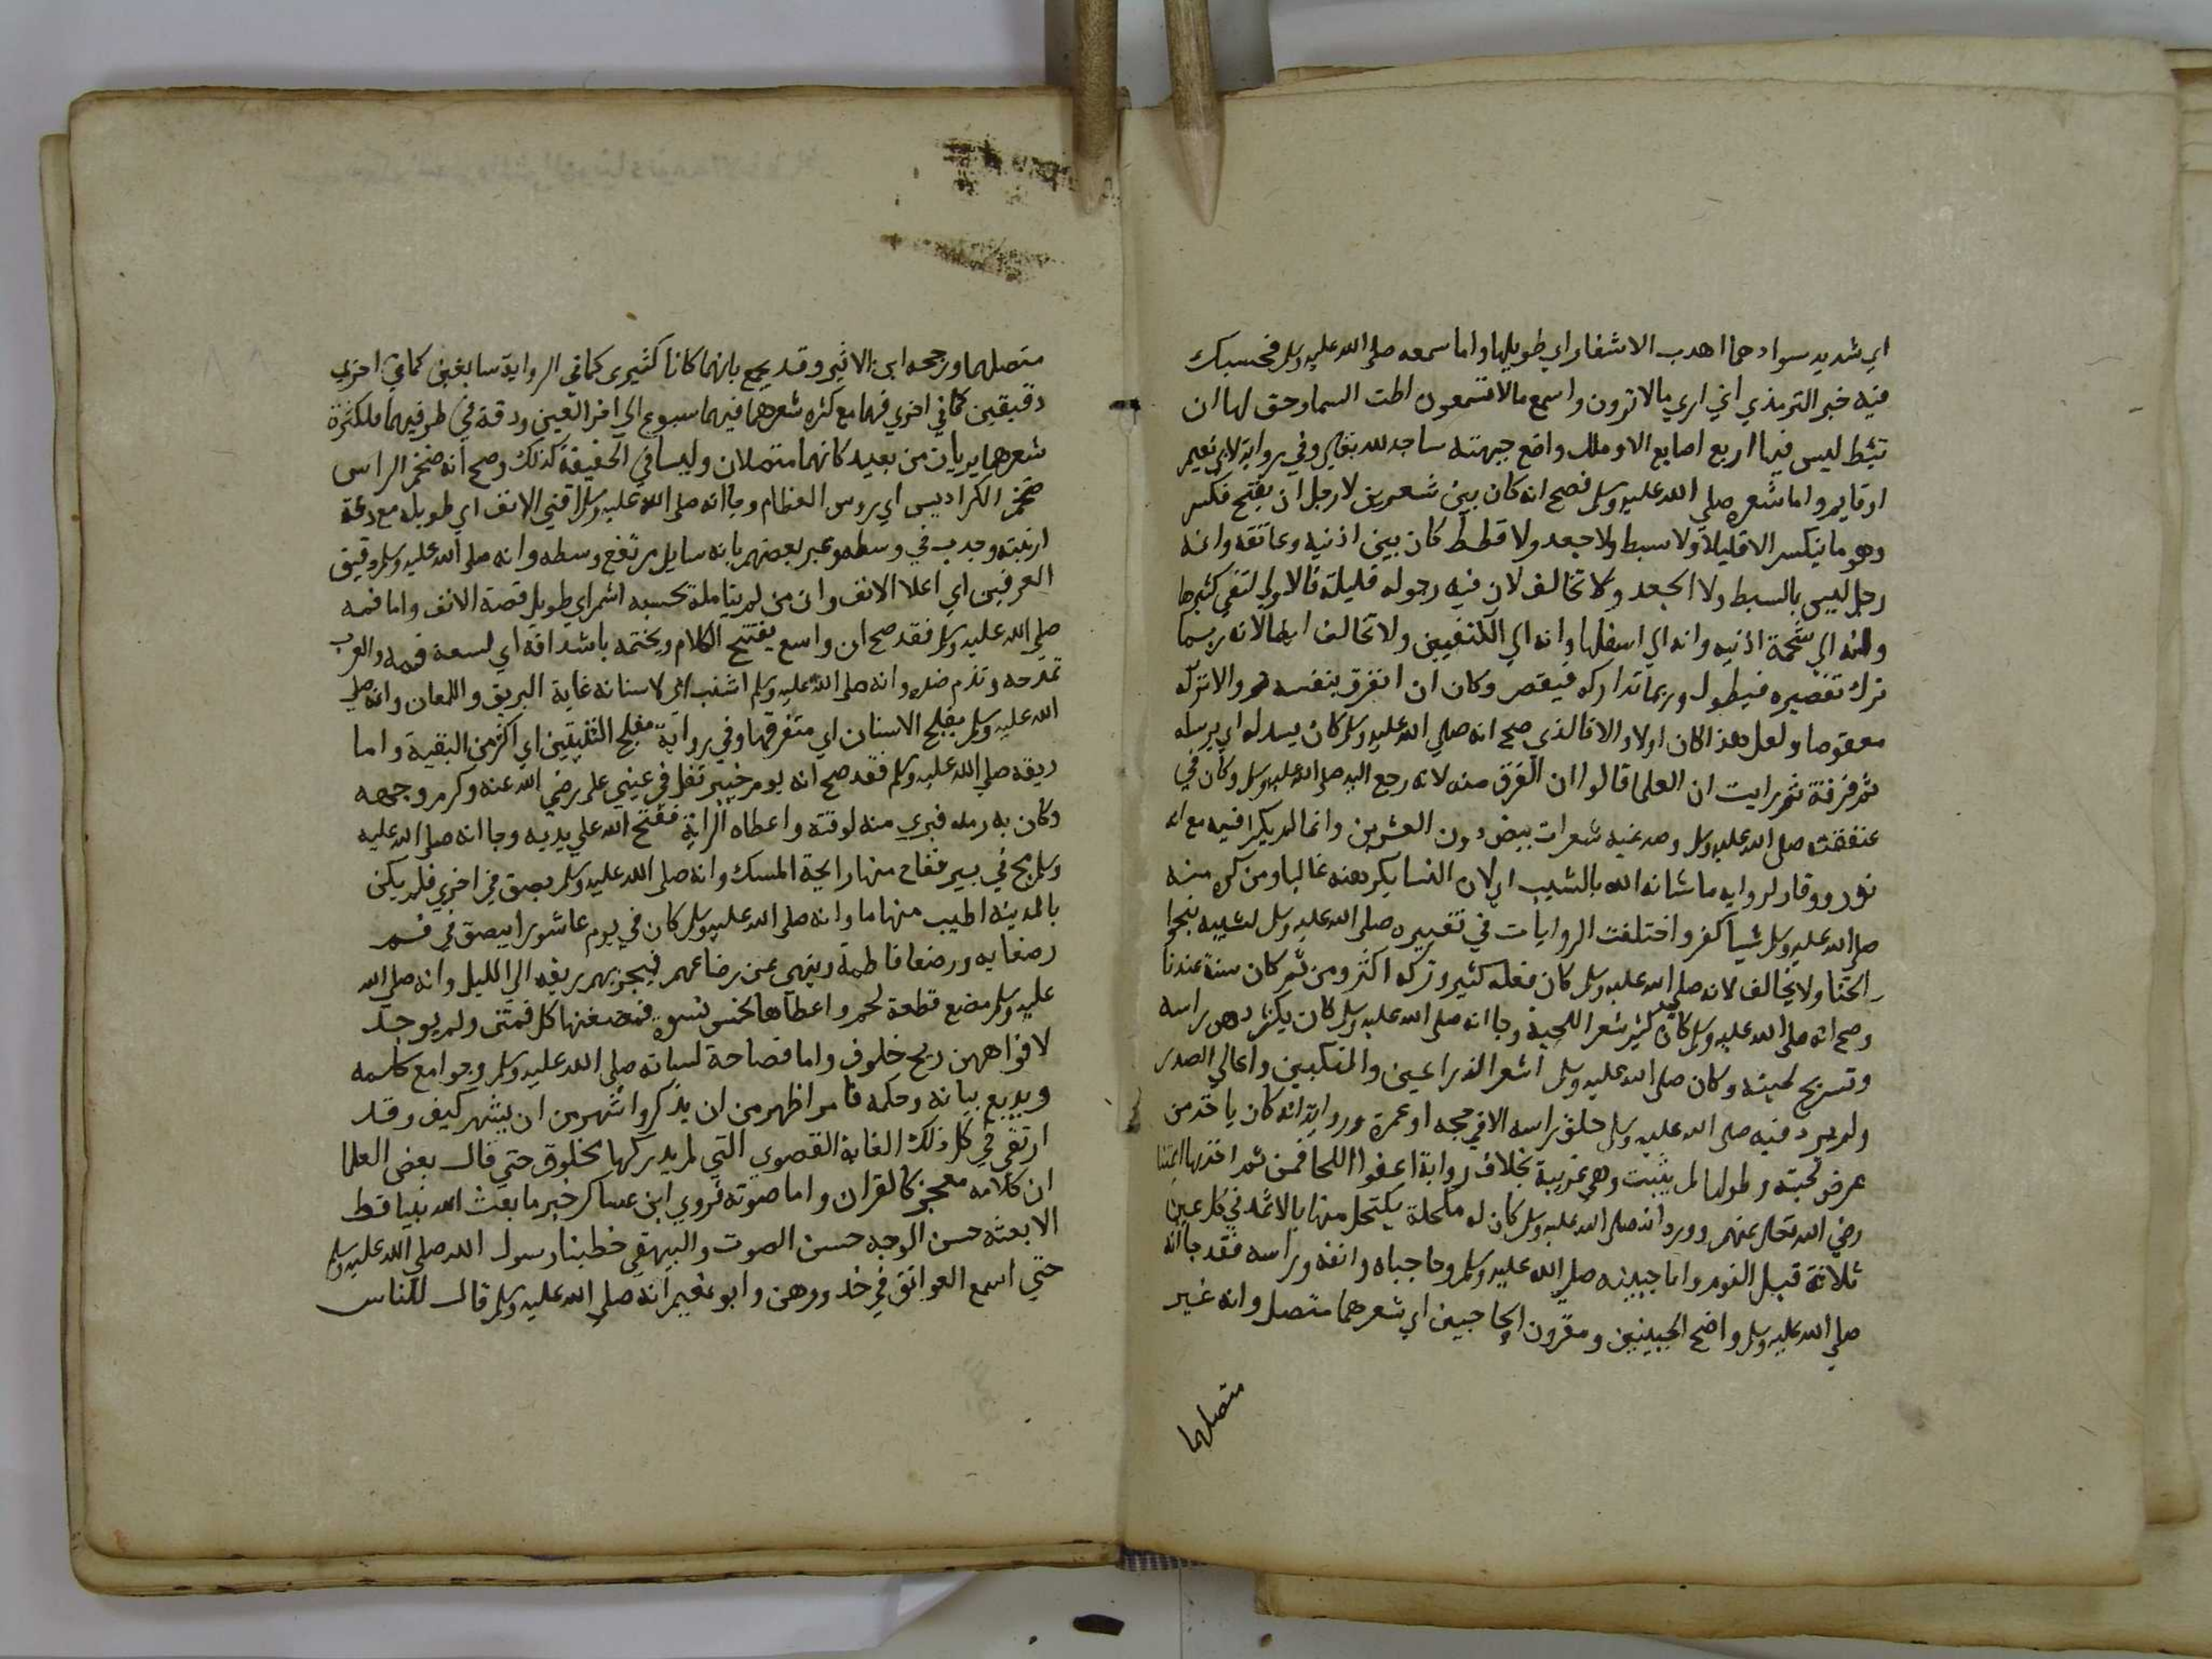 اي شديد سوادهما اهدب الاشفار اي طويلها واما سمعه صلى الله عليه وسلم فحسبك
فيه خبر الترمذي اني اري مالا ترون واسمع مالا تسمعون اطت السما وحق لها ان
تئط ليس فيها اربع اصابع الا وملك واضع جبهته ساجد لله تعالى وفي رواية لابي نعيم
او قايم واما شعره صلى الله عليه وسلم فصح انه كان بين شعرين لا رجل اي بفتح فكسر
وهو ما ينكسر الا قليلا ولا سبط ولا جعد ولا قطط كان بين اذنيه وعاتقه وانه
رجل ليس بالسبط ولا الجعد ولا تخالف لان فيه رجوله قليلة فالاولي لنفي كثيرها
وانه الي شحمة اذنيه وانه الي اسفلها وانه الي الكتفين ولا تخالف ايضا لانه ربما
ترك تقصيره فيطول وربما تداركه فيقصر وكان ان انفرق بنفسه والا تركه
معقوصا ولعل هذا كان اولا والا فالذي صح انه صلى الله عليه وسلم كان يسدله اي يرسله
ثم فرقة ثم رايت ان العلما قالوا ان الفرق سنه لانه رجع اليه صلى الله عليه وسلم وكان في
عنفقته صلى الله عليه وسلم وصدغيه شعرات بيض دون العشرين وانما لم يكثر فيه مع انه
نور ووقار لروايه ما شانه الله بالشيب اي لان النسا يكرهنه غالبا ومن كره منه
صلى الله عليه وسلم شيا كفر واختلفت الروايات في تغييره صلى الله عليه وسلم لشيبه بنحو
الحنا ولا تخالف لانه صلى الله عليه وسلم كان فعله كثير وتركه اكثر ومن ثم كان سنة عندنا
وصح انه صلى الله عليه وسلم كان كثير شعر اللحية وجا انه صلى الله عليه وسلم كان يكثر دهن راسه
وتسريح لحيته وكان صلى الله عليه وسلم اشعر الذراعين والمنكبين واعالي الصدر
ولم يرد فيه صلى الله عليه وسلم حلق راسه الا في حجه او عمرة ورواية انه كان ياخذ من
عرض لحيته وطولها لم يثبت وهي غريبة بخلاف رواية اعفوا اللحا فمن ثم اخذ بها ايمتنا
رضي الله تعالى عنهم وورد انه صلى الله عليه وسلم كان له مكحلة يكتحل منها بالاثمد في كل عين
ثلاثة قبل النوم واما جبينه صلى الله عليه وسلم وحاجباه وانفه وراسه فقد جا انه
صلى الله عليه وسلم واضح الجبينين ومقرون الحاجبين اي شعرهما متصل وانه غير
متصلهما
متصلهما ورجحه ابن الاثير وقد يجمع بانهما كانا كثيري كما في الرواية سابغين كما في اخري
دقيقين كما في اخري فهما مع كثره شعرهما فيهما سبوغ الي اخر العين ودقة في طرفيهما فلكثرة
شعرهما يريان من بعيد كانهما متصلان وليسا في الحقيقة كذلك وصح انه ضخم الراس
ضخم الكراديس اي روس العظام وجا انه صلى الله عليه وسلم اقني الانف اي طويله مع دقة
ارنبته وحدب في وسطه وعبر بعضهم بانه سايل مرتفع وسطه وانه صلى الله عليه وسلم دقيق
العرنين اي اعلا الانف وان من لم يتامله يحسبه اشم اي طويل قصبة الانف واما فمه
صلى الله عليه وسلم فقد صح ان واسع يفتتح الكلام ويختمه باشداقه اي لسعة فمه والعرب
تمدحه وتذم ضده وانه صلى الله عليه وسلم اشنب اي لاسنانه غاية البريق واللمعان وانه صلى
الله عليه وسلم مفلج الاسنان اي متفرقها وفي رواية مفلج الثنيتين اي اكثر من البقية واما
ريقه صلى الله عليه وسلم فقد صح انه يوم خيبر تفل في عيني على رضي الله عنه وكرم وجهه
وكان به رمد فبري منه لوقته واعطاه الراية ففتح الله علي يديه وجا انه صلى الله عليه
وسلم مج في بير ففاح منها رايحة المسك وانه صلى الله عليه وسلم بصق في اخري فلم يكن
بالمدينه اطيب منها ما وانه صلى الله عليه وسلم كان في يوم عاشورا يبصق في فم
رضعايه ورضعا فاطمة وينهي عن رضاعهم فيجزيهم ريقه الي الليل وانه صلى الله
عليه وسلم مضغ قطعة لحم واعطاها لخمس نسوة فمضغنها كل فمتن ولم يوجد
لافواههن ريح خلوف واما فصاحة لسانه صلى الله عليه وسلم وجوامع كلمه
وبديع بيانه وحكمه فامر اظهر من ان يذكر واشهر من ان يشهر كيف وقد
ارتقي في كل ذلك الغاية القصوي التي لم يدركها مخلوق حتي قال بعض العلما
ان كلامه معجز كالقران واما صوته فروي ابن عساكر خبر ما بعث الله نبيا قط
الا بعثه حسن الوجه حسن الصوت والبيهقي خطبنا رسول الله صلى الله عليه وسلم
حتي اسمع العواتق في خدورهن وابو نعيم انه صلى الله عليه وسلم قال للناس